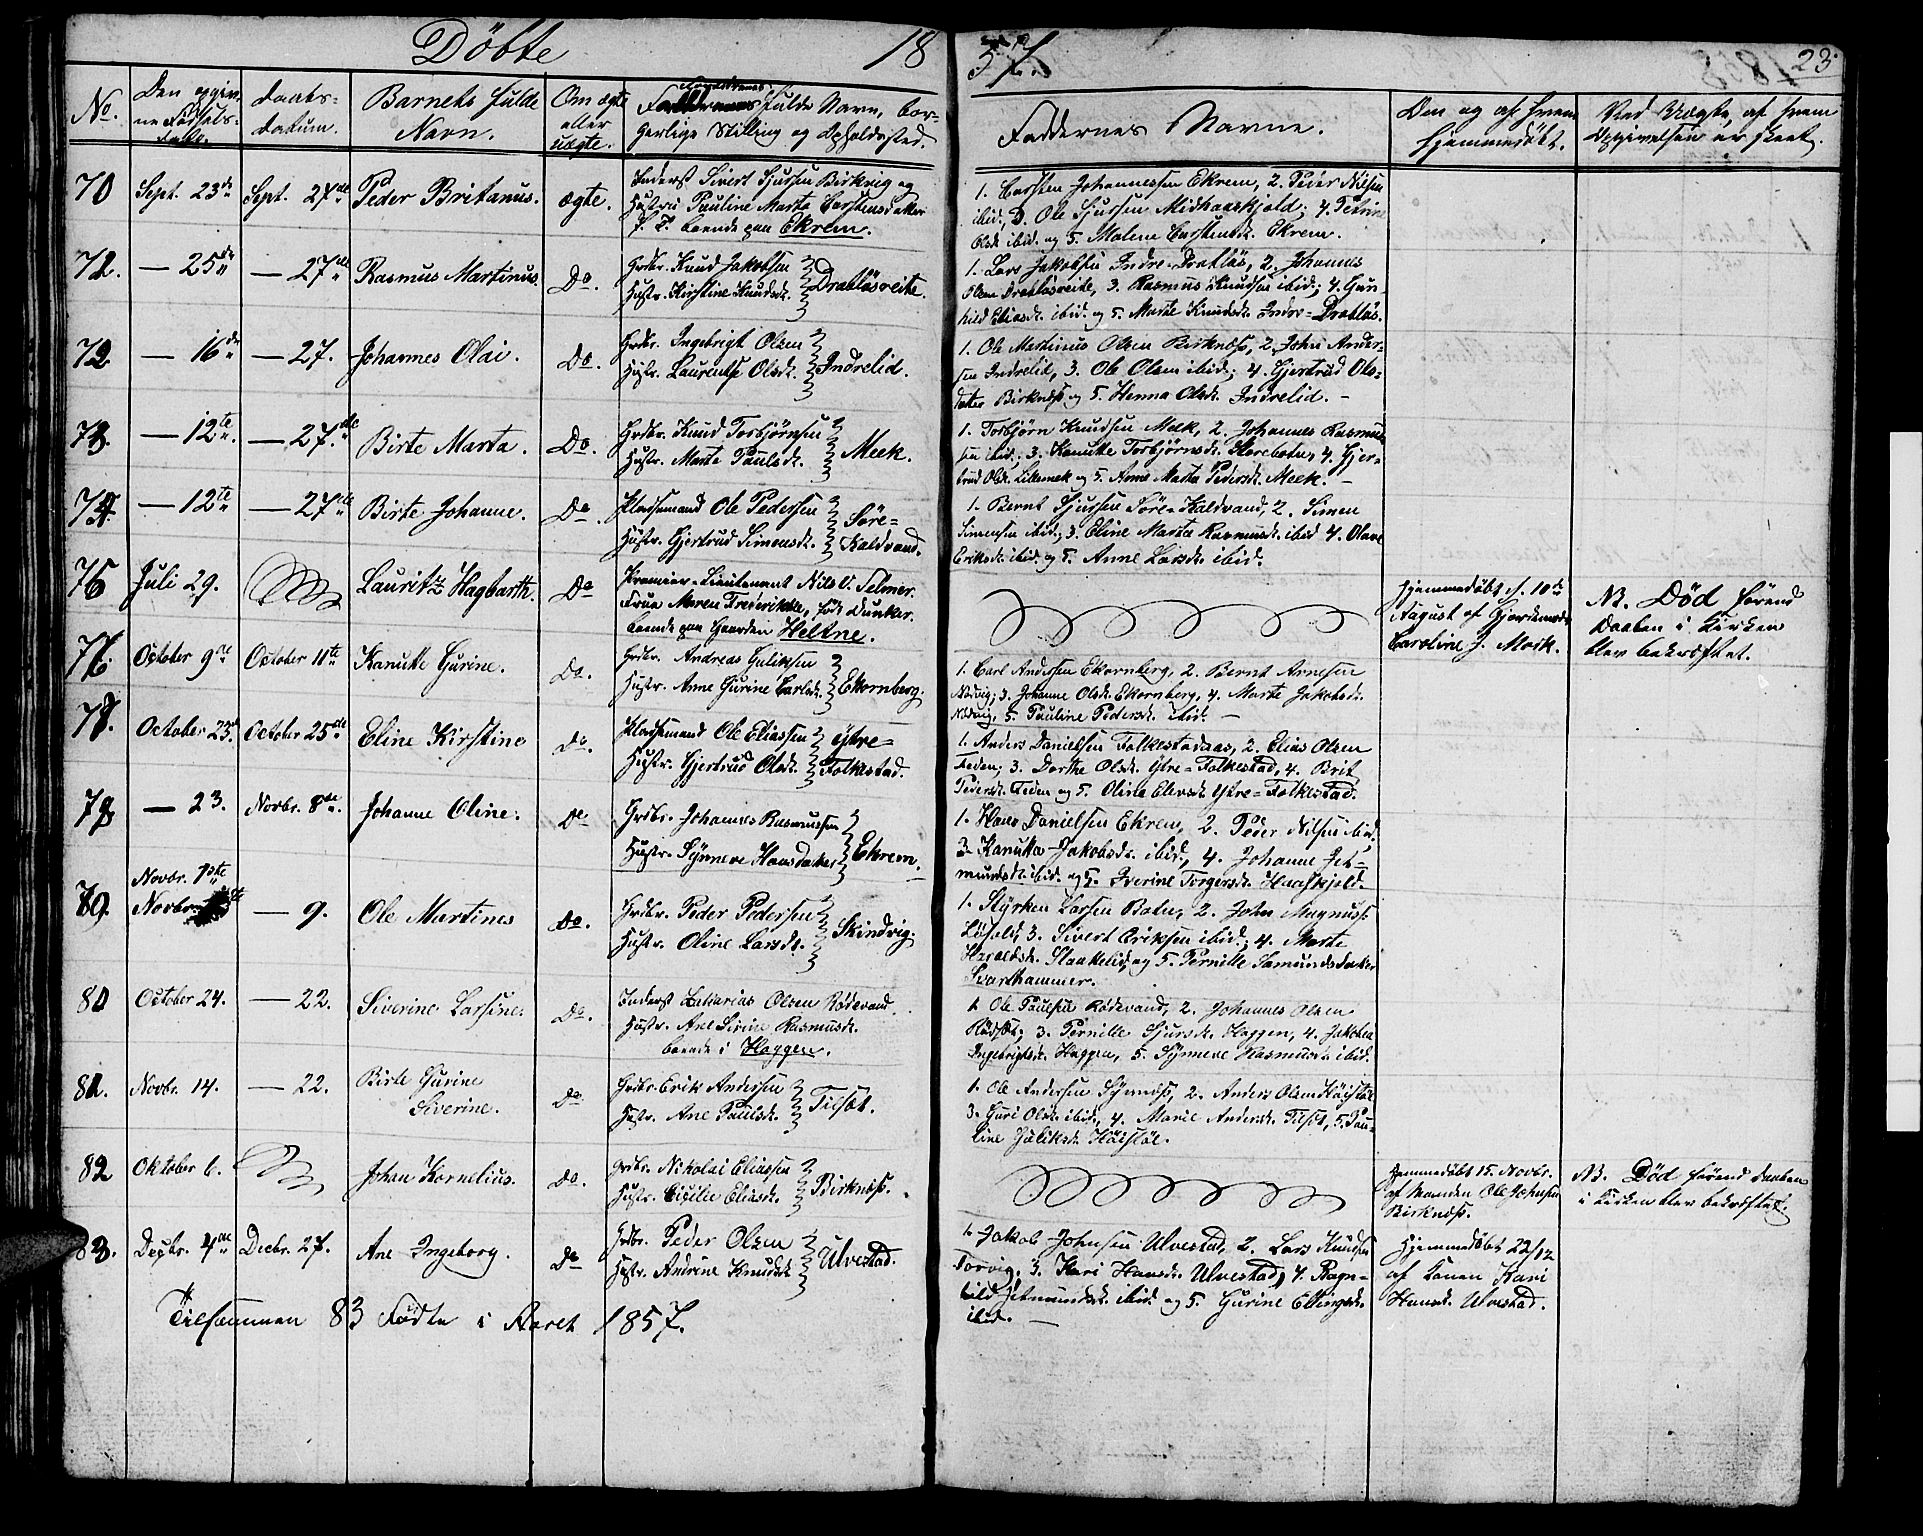 Döbte 18
57. 23.
No.
Den opgiv-
ne Fødsels-
Dato.
Daabs-
datum.
Barnets fulde
Navn.
Om ægte
eller
uægte.
Forældrenes fulde Navn, bor-
gerlige Stilling og Opholdssted.
Faddernes Navne.
Den og af hvem
hjemmedøbt.
Ved Uægte, af hvem
Opgivelsen er skeet.
70 Sept. 23de Sept. 27de Peder Britanus. ægte.
Inderst Sivert Sjursen Birkvig og
Hustru Pauline Marta Carstensdatter
P. T. boende paa Ekrem.
1. Carsten Johannessen Ekrem, 2. Peder Nilsen
ibid., 3. Ole Sjursen Midhaaskjold; 4. Petrine
Olsd. ibid. og 5. Malene Carstensd. Ekrem.
71. — 25de — 27de Rasmus Martinus. Do.
Grdbr. Knud Jakobsen
Hustr. Kirstine Knudsd. Drabløsreite.
1. Lars Jakobsen Indre-Drabløs, 2. Johannes
Olsen Drabløsreite, 3. Rasmus Knudsen ibid; 4. Gun-
hild Eliasd. ibid. og 5. Marte Knudsd. Indre-Drabløs.
72. — 16de — 27. Johannes Olai. Do.
Grdbr. Ingebrigt Olsen
Hustr. Laurentse Olsd. Indrelid.
1. Ole Martinus Olsen Birknæs, 2. John Ander-
sen Indrelid, 3. Ole Olsen ibid; 4. Gjertrud Ols-
datter Birknæs og 5. Henna Olsd. Indrelid. —
73. — 12te. — 27de. Birte Marta. Do.
Grdbr. Knud Torbjørnsen
Hustr. Marta Paulsd. Meek.
1. Torbjørn Knudsen Meek, 2. Johannes Rasmus-
sen ibid; 3. Kanutte Torbjørnsd. Storebotn, 4. Gjer-
trud Olsd. Lillemek og 5. Anne Marta Pedersd. Meek. —
74. — 12te — 27de Birte Johanne. Do.
Pladsemand Ole Pedersen
Hustr. Gjertrud Simonsd. Søre-
Kaldvand.
1. Bernt Sjursen Søre-Kaldvand, 2. Simen
Simensen ibid; 3. Eline Martha Rasmusd. ibid 4. Olave
Eriksd. ibid. og 5. Anne Larsd. ibid.
75 Juli 29. Lauritz Hagbarth. Do
Premier-Lieutenant Nils V. Selmer.
Frue Maren Frederikke, født Dunker.
boende paa Gaarden Heltne.
Hjemmedøbt d. 10de
August af Gjordemoder
Caroline J. Mork.
NB. Død førend
Daaben i Kirken
blev bekræftet.
76. October 9de October 11te Kanutte Gurine. Do.
Grdbr. Andreas Guliksen
Hustr. Anne Gurine Carlsd. Ekornberg.
1. Carl Andersen Ekornberg, 2. Bernt Arnesen
Nødvig; 3. Johanne Olsd. Ekornberg, 4. Marte Jakobsd.
Nødvig, 5. Pauline Pedersd. ibid. —
77. October 23d. October 25de Eline Kirstine Do.
Pladsemand Ole Eliassen
Hustr. Gjertrud Olsd. Ytre-
Folkestad.
1. Anders Danielsen Folkestadaas, 2. Elias Olsen
Feden; 3. Dorthe Olsd. Ytre-Folkestad, 4. Brit
Pedersd. Feden og 5. Oline Elevsd. Ytre-Folkestad.
78 — 23. Novbr. 8de. Johanne Oline. Do
Grdbr. Johannes Rasmussen
Hustr. Synneve Hansdatter Ekrem.
1. Hans Danielsen Ekrem, 2. Peder Nilsen ibid,
3. Kanutta Jakobsd. ibid., 4. Johanne Jet-
mundsd. ibid. og 5. Iverine Torgersd. Haaskjold.
79. Novbr. 1ste
Novbr. — 9. Ole Martines Do.
Grdbr. Peder Pedersen
Hustr. Oline Larsd. Skindvig.
1. Styrker Larsen Botn, 2. John Magnuss.
3. Sivert Eriksen ibid; 4. Marte
og 5. Pernille Samundsdatter
Svarthammer.
80 October 24. — 22. Siverine Larsine. Do.
Inderst Zakarias Olsen Rødevand.
Hustr. Ane Sirine Rasmusd.
boende i Haggen.
1. Ole Paulsen Rødevand, 2. Johannes Olsen
Rødsæt; 3. Pernille Sjursd. Haggen, 4. Jakobea
Ingebrigtsd. Haggen, 5. Synneve Rasmusd. ibid.
81. Novbr. 14. — 22. Birte Gurine
Siverine. Do
Grdbr. Erik Andersen
Hustr. Ane Paulsd. Tilset.
1. Ole Andersen Synnæs, 2. Anders Olsen Høistøl
3. Guri Olsd. ibid., 4. Marie Andersd. Tilset, 5. Pau-
line Guliksd. Høistøl.
82 Oktober 6. Johan Kornelius. Do.
Grdbr. Nikolai Eliassen
Hustr. Cicilie Eliasd. Birknæs.
Hjemmedøbt 15. Novbr.
af Manden Ole Johnsen
Birknæs.
NB. Død førend Daaben
i Kirken blev bekræftet.
83. Decbr. 4de Decbr. 27. Ane Ingeborg. Do
Grdbr. Peder Olsen
Hustr. Andrine Knudsd. Ulvestad.
1. Jakob Johnsen Ulvestad, 2. Lars Knudsen
Torvig, 3. Kari Hansd. Ulvestad, 4. Ragn-
hild Jetmundsd. ibid. og 5. Gurine Ellingsd.
ibid. —
Hjemmedøbt 22/12
af Konen Kari
Hansd. Ulvestad.
Tilsammen 83 Fødte i Aaret 1857.